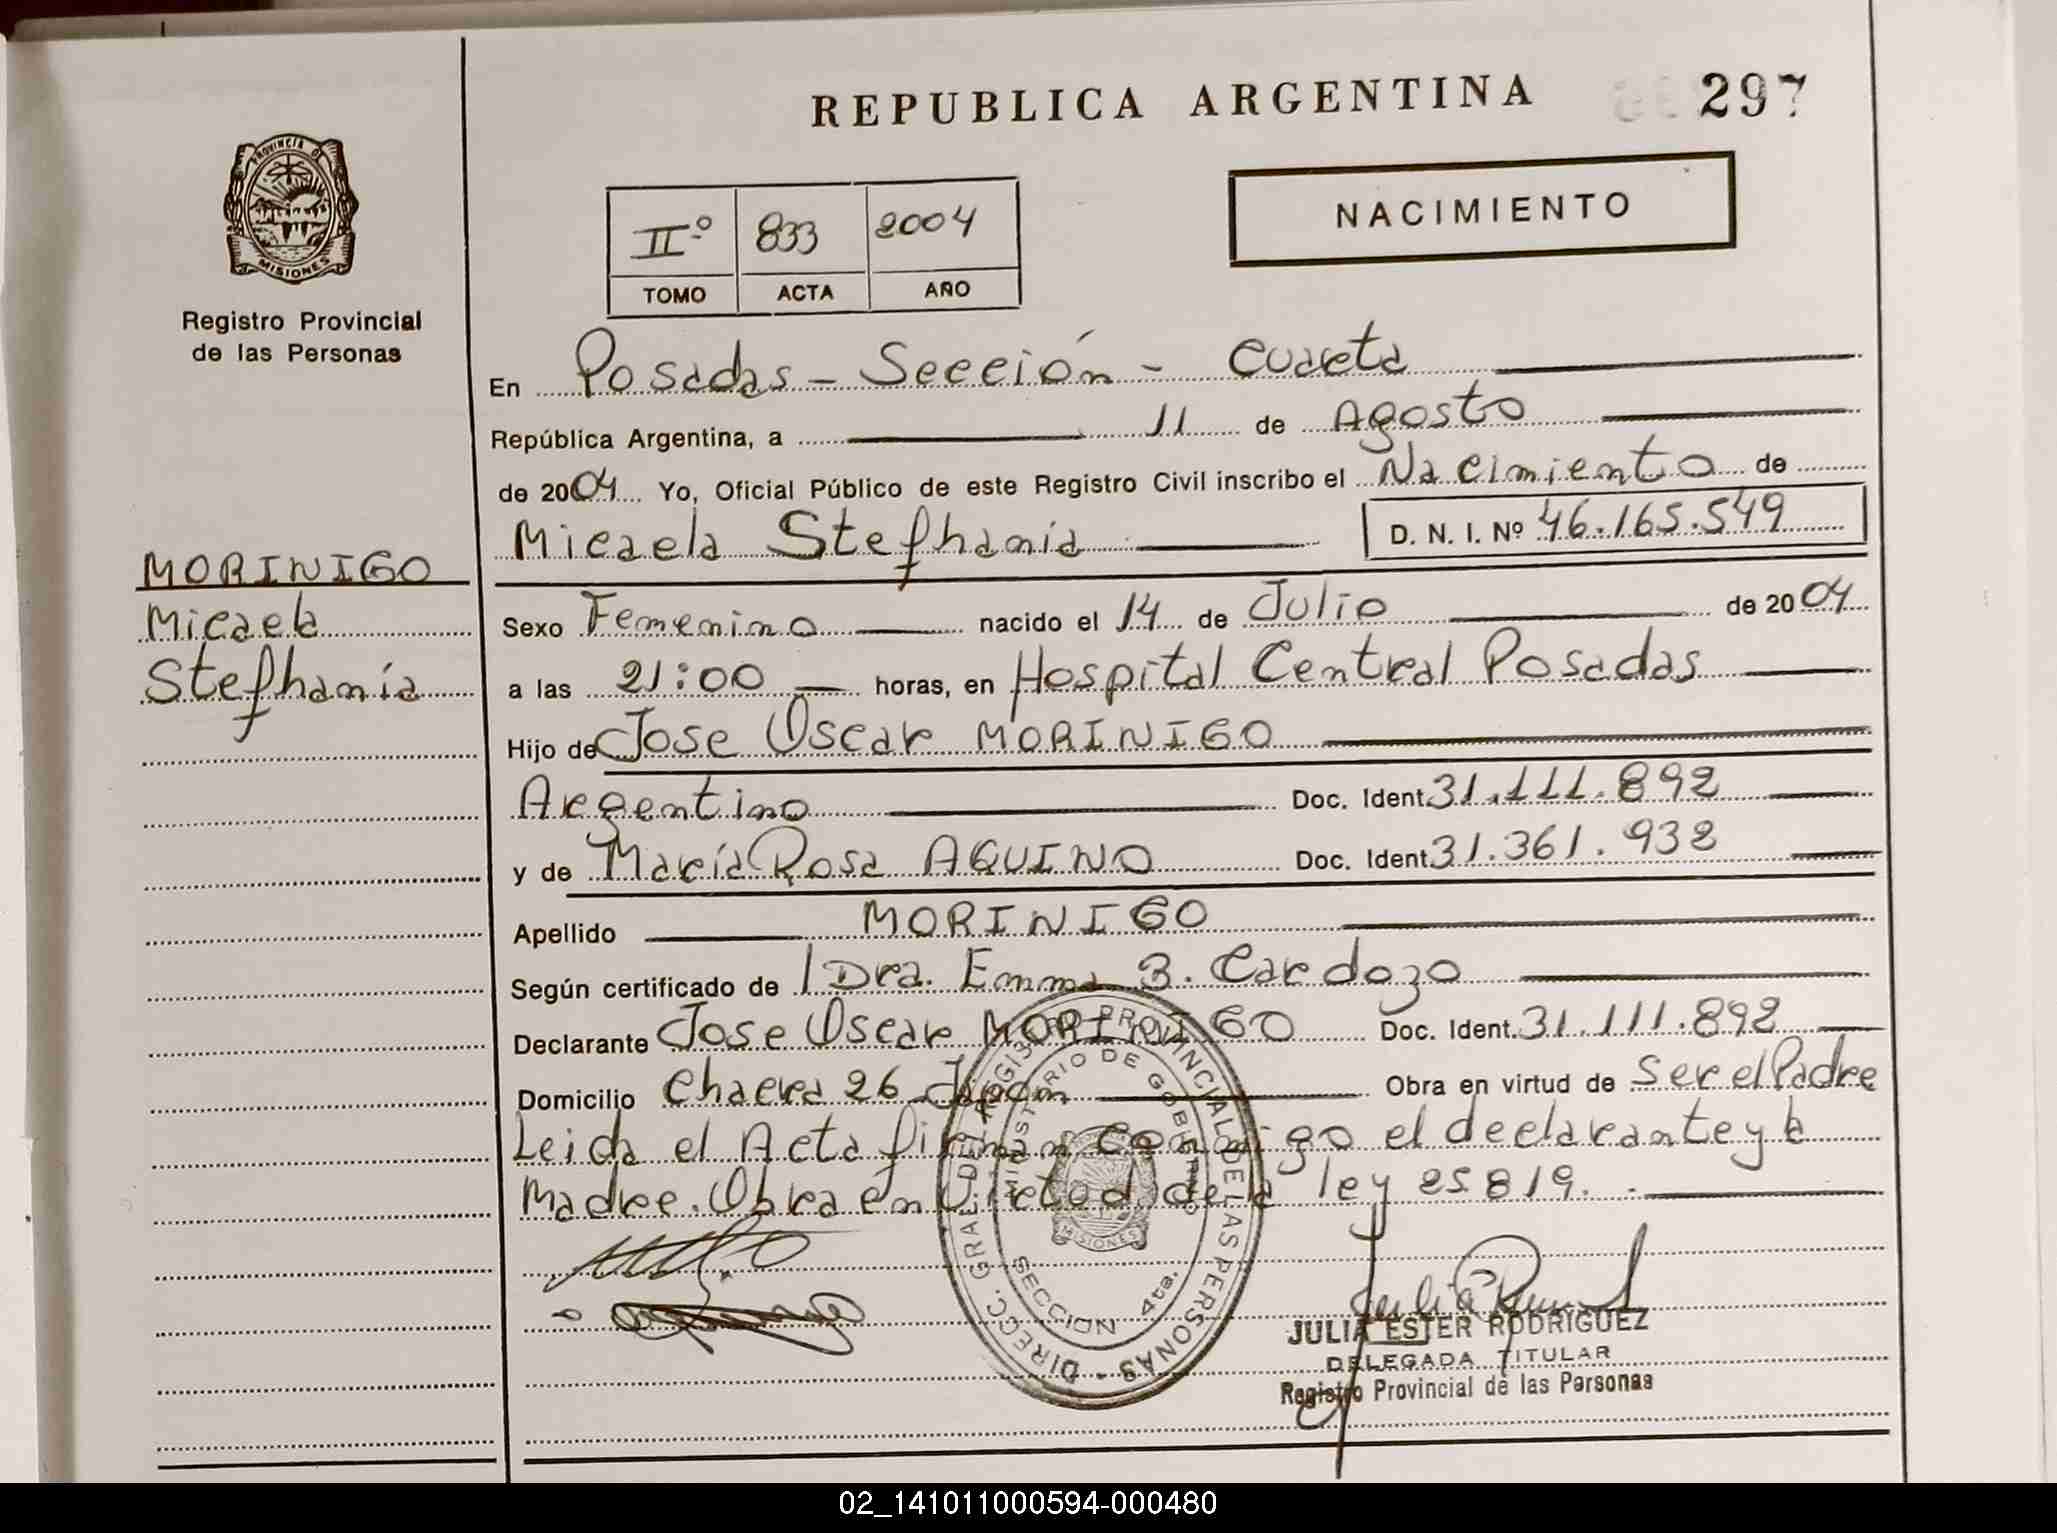 REPUBLICA ARGENTINA
297
PROVINCIA DE
MISIONES
Registro Provincial
de las Personas
IIº 833 2004
TOMO ACTA AÑO
NACIMIENTO
En Posadas - Sección - Cuarta
República Argentina, a 11 de Agosto
de 2004 Yo, Oficial Público de este Registro Civil inscribo el Nacimiento de
Micaela Stefhania D. N. I. Nº 46.165.549
MORINIGO
Micaela
Stefhanía
Sexo Femenino nacido el 14 de Julio de 2004
a las 21:00 horas, en Hospital Central Posadas
Hijo de Jose Oscar MORINIGO
Argentino Doc. Ident. 31.111.892
y de María Rosa AQUINO Doc. Ident. 31.361.932
Apellido MORINIGO
Según certificado de Dra. Emma B. Cardozo
Declarante Jose Oscar MORINIGO Doc. Ident. 31.111.892
Domicilio Chacra 26 Obra en virtud de Ser el Padre
Leida el Acta firman Conmigo el declarante y la
Madre. Obra en Virtud de la ley 25819.
DIRECC. GRAL DEL REGISTRO PROVINCIAL DE LAS PERSONAS
MINISTERIO DE GOBIERNO
MISIONES
SECCION 4ta.
JULIA ESTER RODRIGUEZ
DELEGADA TITULAR
Registro Provincial de las Personas
02_141011000594-000480